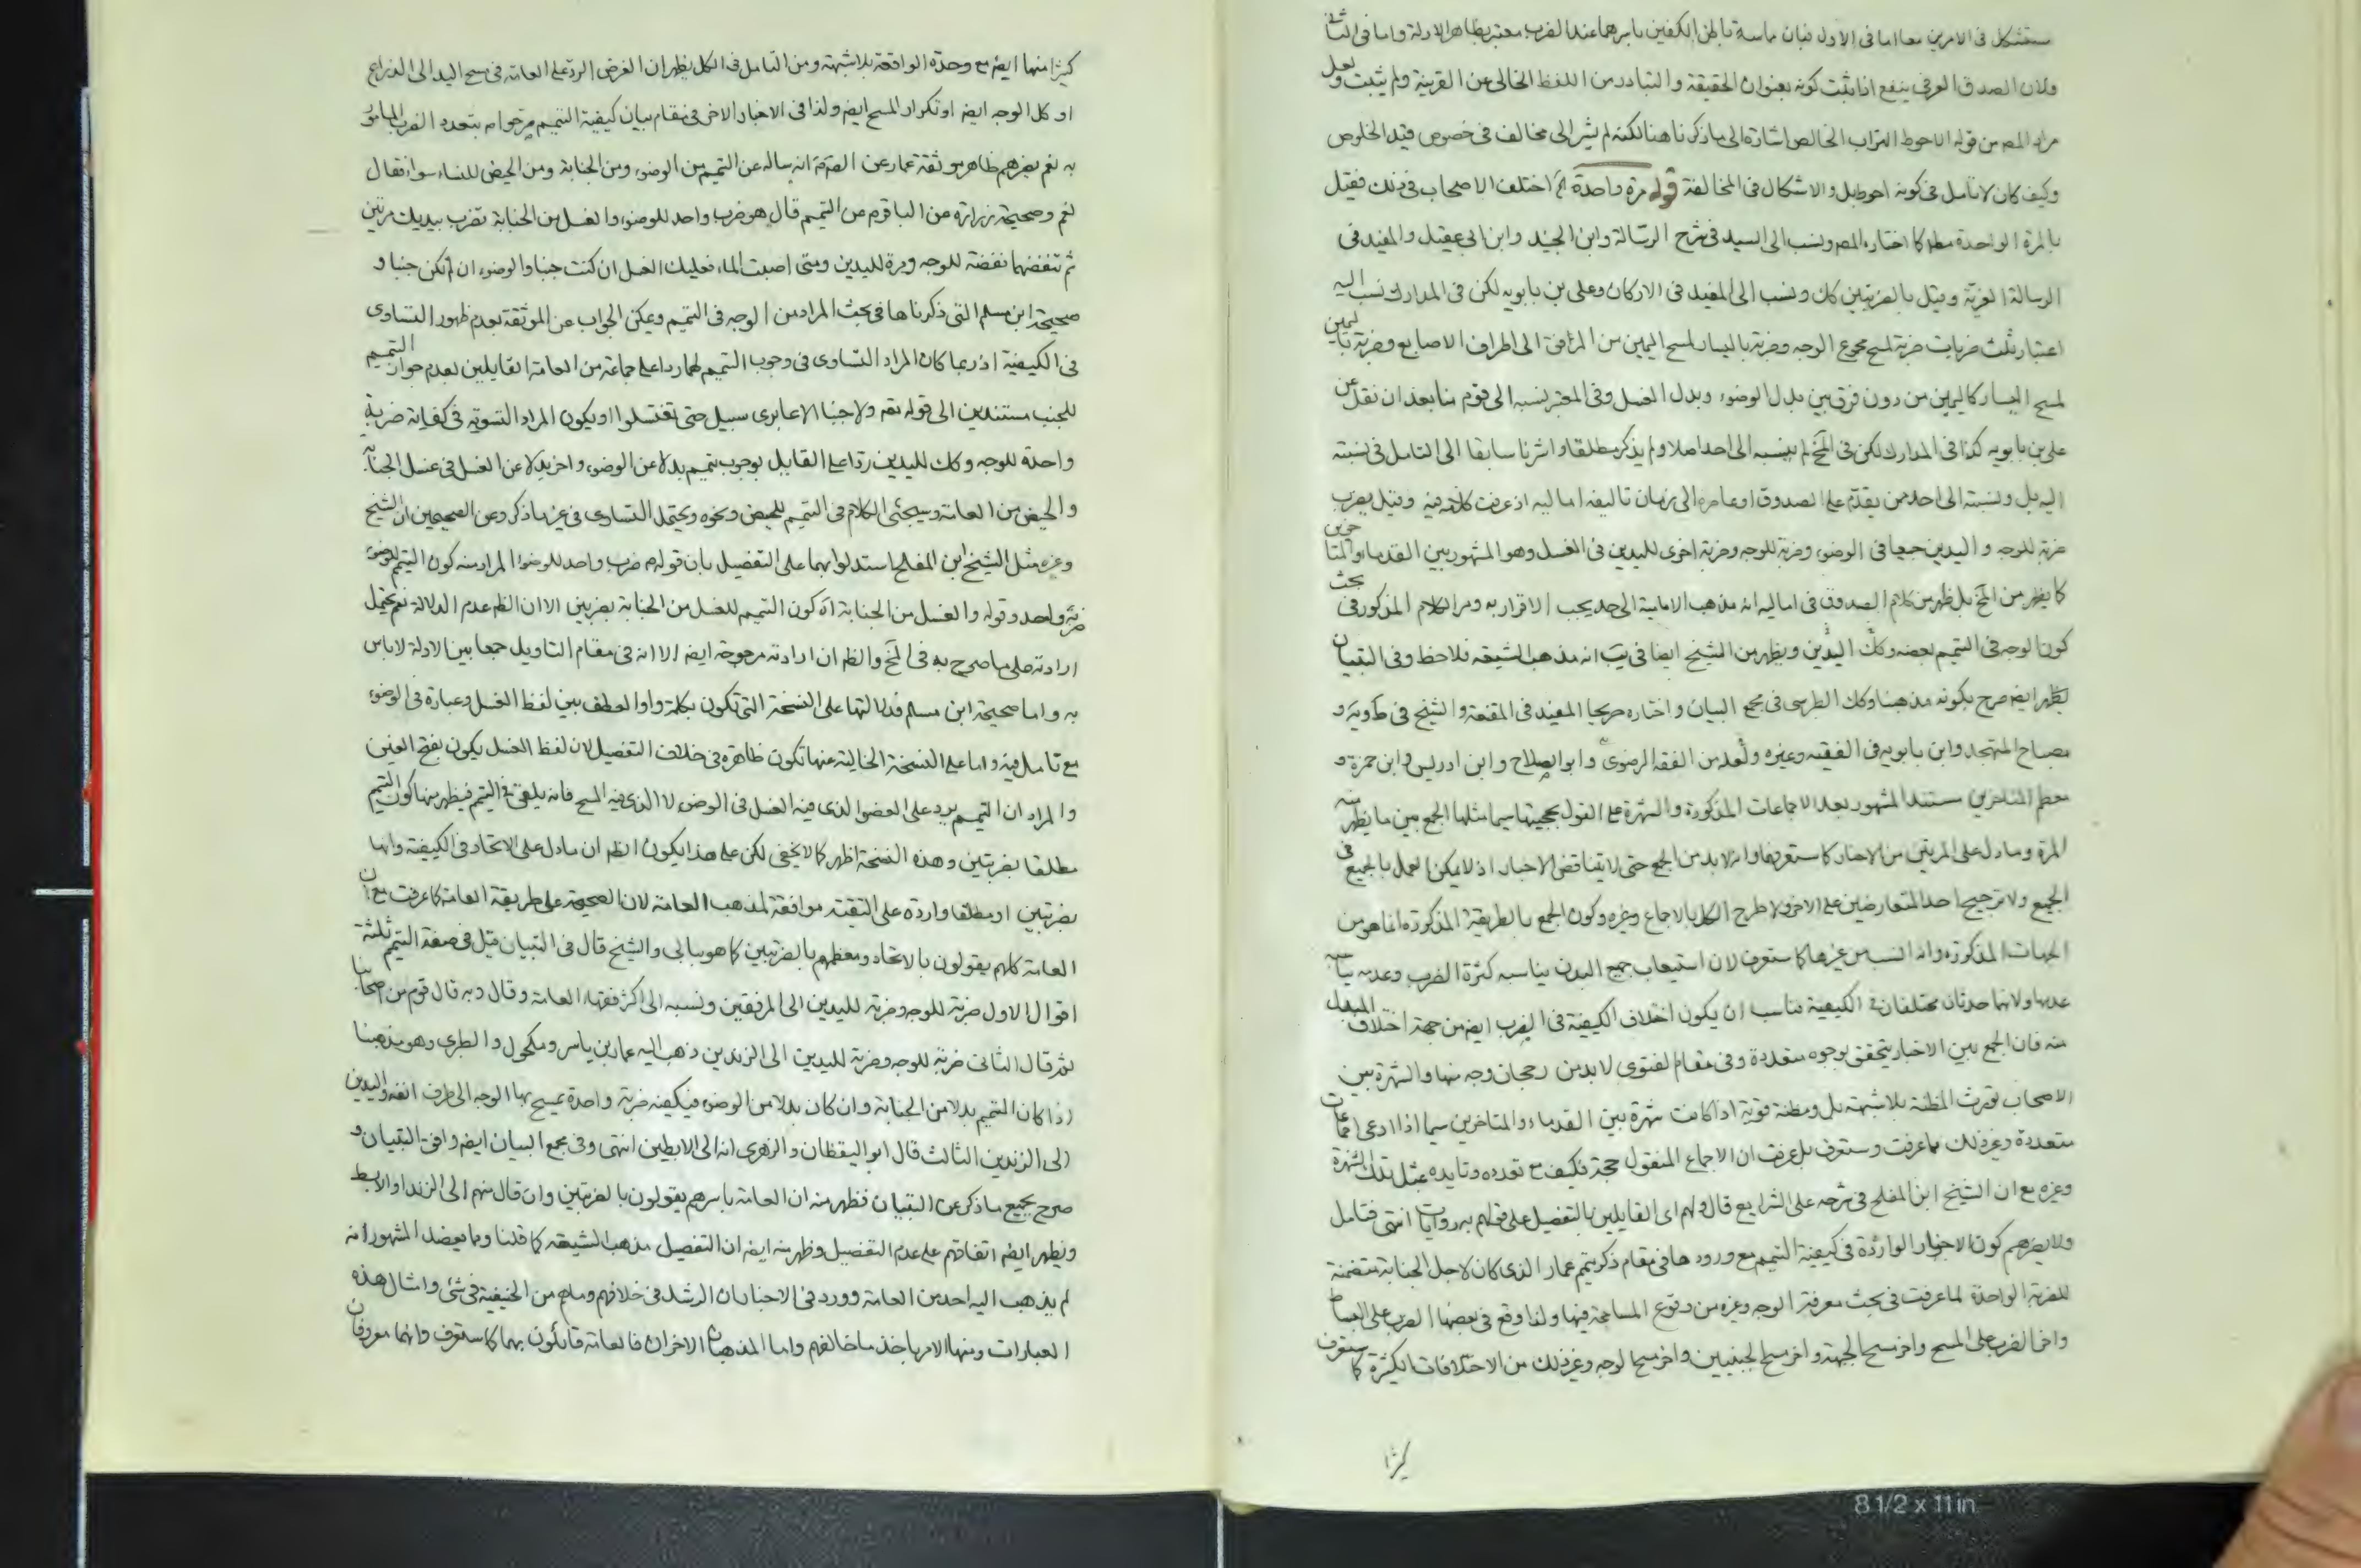 مستشكل فى الامرين معا اما فى الاول فبان ماسة باطن الكفين باسرهما عند الضرب معتبر بظاهر الادلة واما فى الثانى
ولان الصدق العرفى ينفع اذا ثبت كونه بعنوان الحقيقة والتبادر من اللفظ الخالى عن القرينة ولم يثبت ولعل
مراد المصه من قوله الاحوط التراب الخالص اشارة الى ما ذكرنا هنا لكنه لم يشر الى مخالف فى خصوص قيد الخلوص
وكيف كان لا تامل فى كونه احوط بل والاشكال فى المخالفة قوله مرة واحدة اختلف الاصحاب فى ذلك فقيل
بالمرة الواحدة مطلقا كما اختاره المصه ونسب الى السيد فى شرح الرسالة وابن الجنيد وابن ابى عقيل والمفيد فى
الرسالة الغرية وقيل بالضربتين كك ونسب الى المفيد فى الاركان وعلى بن بابويه لكن فى المدارك نسب اليه
اعتبار ثلث ضربات ضربة لمسح مجموع الوجه وضربة باليسار لمسح اليمين من المرافق الى اطراف الاصابع وضربة باليمين
لمسح اليسار كاليمين من دون فرق بين بدل الوضوء وبدل الغسل وفى المعتبر نسبه الى قوم منا بعد ان نقل عن
على بن بابويه كذا فى المدارك لكن فى المخ لم ينسبه الى احد اصلا ولم يذكر مطلقا واشرنا سابقا الى التامل فى نسبته
اليه بل ونسبته الى احد ممن يقدم على الصدوق او عاصره الى زمان تاليفه اماليه اذ عرفت كلامه فيه وقيل بضرب
ضربة للوجه واليدين جميعا فى الوضوء وضربة للوجه وضربة اخرى لليدين فى الغسل وهو المشهور بين القدماء والمتاخرين
كما يظهر من المخ بل ظهر من كلام الصدوق فى اماليه انه مذهب الامامية الى حد يجب الاقرار به ومر الكلام المذكور فى بحث
كون الوجه فى التيمم بعضه وكك اليدين ويظهر من الشيخ ايضا فى يب انه مذهب الشيعة فلاحظ وفى التبيان
يظهر ايضه صرح بكونه مذهبنا وكك الطبرسى فى مجمع البيان واختاره صريحا المفيد فى المقنعة والشيخ فى ط ويه و
مصباح المتهجد وابن بابويه فى الفقيه وغيره ولعله من الفقه الرضوى وابو الصلاح وابن ادريس وابن حمزة و
معظم المتاخرين مستند المشهور بعد الاجماعات المذكورة والشهرة على القول بحجيتها سيما مثلها الجمع بين ما يظهر منه
المرة وما دل على المرتين من الاخبار كما ستعرفها وانه لا بد من الجمع حتى لا يتناقض الاخبار اذ لا يمكن العمل بالجميع فى
الجميع ولا ترجيح احد المتعارضين على الاخر ولا طرح الكل بالاجماع وغيره وكون الجمع بالطريقة المذكورة انما هو من
الجهات المذكورة وانه انسب من غيرها كما ستعرف لان استيعاب جميع البدن يناسبه كثرة الضرب وعدمه يناسبه
عدمها ولانهما حدثان مختلفان فى الكيفية مناسب ان يكون اختلاف الكيفية فى الضرب ايضه من جهة اختلاف المبدل
منه فان الجمع بين الاخبار يتحقق بوجوه متعددة وفى مقام الفتوى لا بد من رجحان وجه منها والشهرة بين
الاصحاب تورث المظنة بلا شبهة بل ومظنة قوية اذا كانت شهرة بين القدماء والمتاخرين سيما اذا ادعى اجماعات
متعددة وغير ذلك مما عرفت وستعرف بل عرفت ان الاجماع المنقول حجة فكيف مع تعدده وتايده بمثل تلك الشهرة
وغيره مع ان الشيخ ابن المفلح فى شرحه على الشرايع قال ولهم اى القايلين بالتفصيل على قولهم به روايات انتهى فتامل
ولا يضرهم كون الاخبار الواردة فى كيفية التيمم مع ورودها فى مقام ذكر تيمم عمار الذى كان لاجل الجنابة متضمنة
للضربة الواحدة لما عرفت فى بحث معرفة الوجه وغيره من وقوع المسامحة فيها ولذا وقع فى بعضها الضرب على البساط
واخر الضرب على المسح واخر مسح الجبهة واخر مسح الجبينين واخر مسح الوجه وغير ذلك من الاختلافات الكثيرة كما ستعرف
كثيرا
كثيرا منها ايضه مع وحدة الواقعة بلا شبهة ومن التامل فى الكل يظهر ان الغرض الرد على العامة فى مسح اليد الى الذراع
او كل الوجه ايضه او تكرار المسح ايضه ولذا فى الاخبار الاخر فى مقام بيان كيفية التيمم صرحوا عم بتعدد الضرب المامور
به نعم يضرهم ظاهر موثقة عمار عن الصادق ع انه ساله عن التيمم من الوضوء ومن الجنابة ومن الحيض للنساء سواء فقال
نعم وصحيحة زرارة عن الباقر ع من التيمم قال هو ضرب واحد للوضوء والغسل من الجنابة تضرب بيديك مرتين
ثم تنفضهما نفضة للوجه ومرة لليدين ومتى اصبت الماء فعليك الغسل ان كنت جنبا والوضوء ان لم تكن جنبا و
صحيحة ابن مسلم التى ذكرناها فى بحث المراد من الوجه فى التيمم ويمكن الجواب عن الموثقة بعدم ظهور التساوى
فى الكيفية اذ ربما كان المراد التساوى فى وجوب التيمم لهما ردا على جماعة من العامة القايلين بعدم جواز التيمم
للجنب مستندين الى قوله تعه ولا جنبا الا عابرى سبيل حتى تغتسلوا او يكون المراد التسوية فى كفاية ضربة
واحدة للوجه وكك لليدين ردا على القايل بوجوب تيمم بدلا عن الوضوء واخر بدلا عن الغسل فى غسل الجنابة
والحيض من العامة وسيجئ الكلام فى التيمم للحيض ونحوه ويحتمل التساوى فى غير ما ذكر وعن الصحيحين ان الشيخ
وغيره مثل الشيخ ابن المفلح استدلوا بهما على التفصيل بان قوله ع ضرب واحد للوضوء المراد منه كون التيمم للوضوء
ضربة واحدة وقوله والغسل من الجنابة آه كون التيمم للغسل من الجنابة بضربتين الا ان الظ عدم الدلالة نعم يحتمل
ارادته على ما صرح به فى المخ والظ ان ارادته مرجوحة ايضه الا انه فى مقام التاويل جمعا بين الادلة لا باس
به واما صحيحة ابن مسلم فدلالتها على النسخة التى تكون بكلمة واو العطف بين لفظ الغسل وعبارة فى الوضوء
مع تامل فيه واما على النسخة الخالية عنها تكون ظاهرة فى خلاف التفصيل لان لفظ الغسل يكون بفتح الغين
والمراد ان التيمم يرد على العضو الذى فيه الغسل فى الوضوء لا الذى فيه المسح فانه يلغى فى التيمم فيظهر منها كون التيمم
مطلقا بضربتين وهذه النسخة اظهر كما لا يخفى لكن على هذا يكون الظ ان ما دل على الاتحاد فى الكيفية وانها
بضربتين او مطلقا واردة على التقية موافقة لمذهب العامة لان الصحيحة على طريقة العامة كما عرفت مع ان
العامة كلهم يقولون بالاتحاد ومعظمهم بالضربتين كما هو ببالى والشيخ قال فى التبيان قيل فى صفة التيمم ثلثة
اقوال الاول ضربة للوجه وضربة لليدين الى المرفقين ونسبه الى اكثر فقهاء العامة وقال وبه قال قوم من اصحابنا
ثم قال الثانى ضربة للوجه وضربة لليدين الى الزندين ذهب اليه عمار بن ياسر ومكحول والطبرى وهو مذهبنا
اذا كان التيمم بدلا من الجنابة وان كان بدلا من الوضوء فيكفيه ضربة واحدة يمسح بها الوجه الى طرف انفه واليدين
الى الزندين الثالث قال ابو اليقظان والزهرى انه الى الابطين انتهى وفى مجمع البيان ايضه وافق التبيان و
صرح بجميع ما ذكر عن التبيان فظهر منه ان العامة باسرهم يقولون بالضربتين وان قال منهم الى الزند او الابط
ويظهر ايضه اتفاقهم على عدم التفصيل وظهر منه ايضه ان التفصيل مذهب الشيعة كما قلنا ومما يعضد المشهور انه
لم يذهب اليه احد من العامة وورد فى الاخبار ان الرشد فى خلافهم وما هم من الحنيفية فى شئ وامثال هذه
العبارات ومنها الامر باخذ ما خالفهم واما المذهبان الاخران فالعامة قائلون بهما كما ستعرف وانهما معروفان
8 1/2 x 11 in